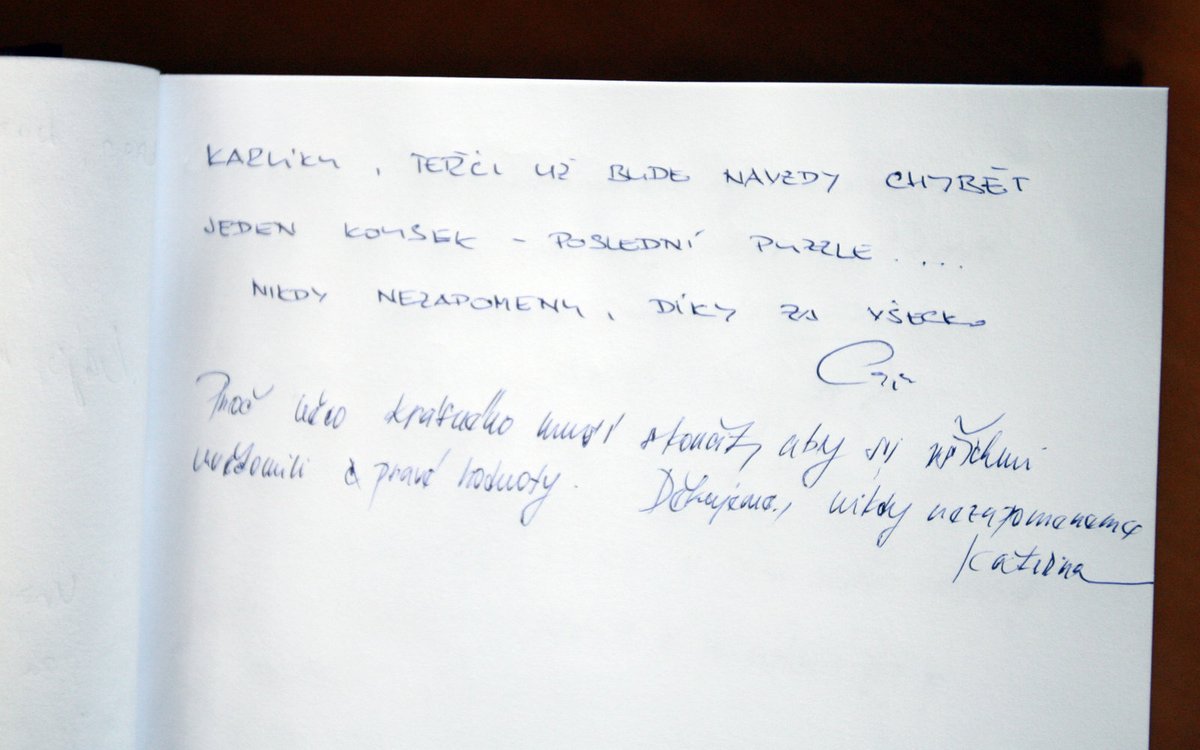 KARLÍKU, TERČI UŽ BUDE NAVZDY CHYBĚT
JEDEN KOUSEK - POSLEDNÍ PUZZLE....
NIKDY NEZAPOMENU, DÍKY ZA VŠECKO
Proč něco krásného musí skončit, aby si všichni
uvědomili pravé hodnoty. Děkujeme, nikdy nezapomeneme
Kateřina